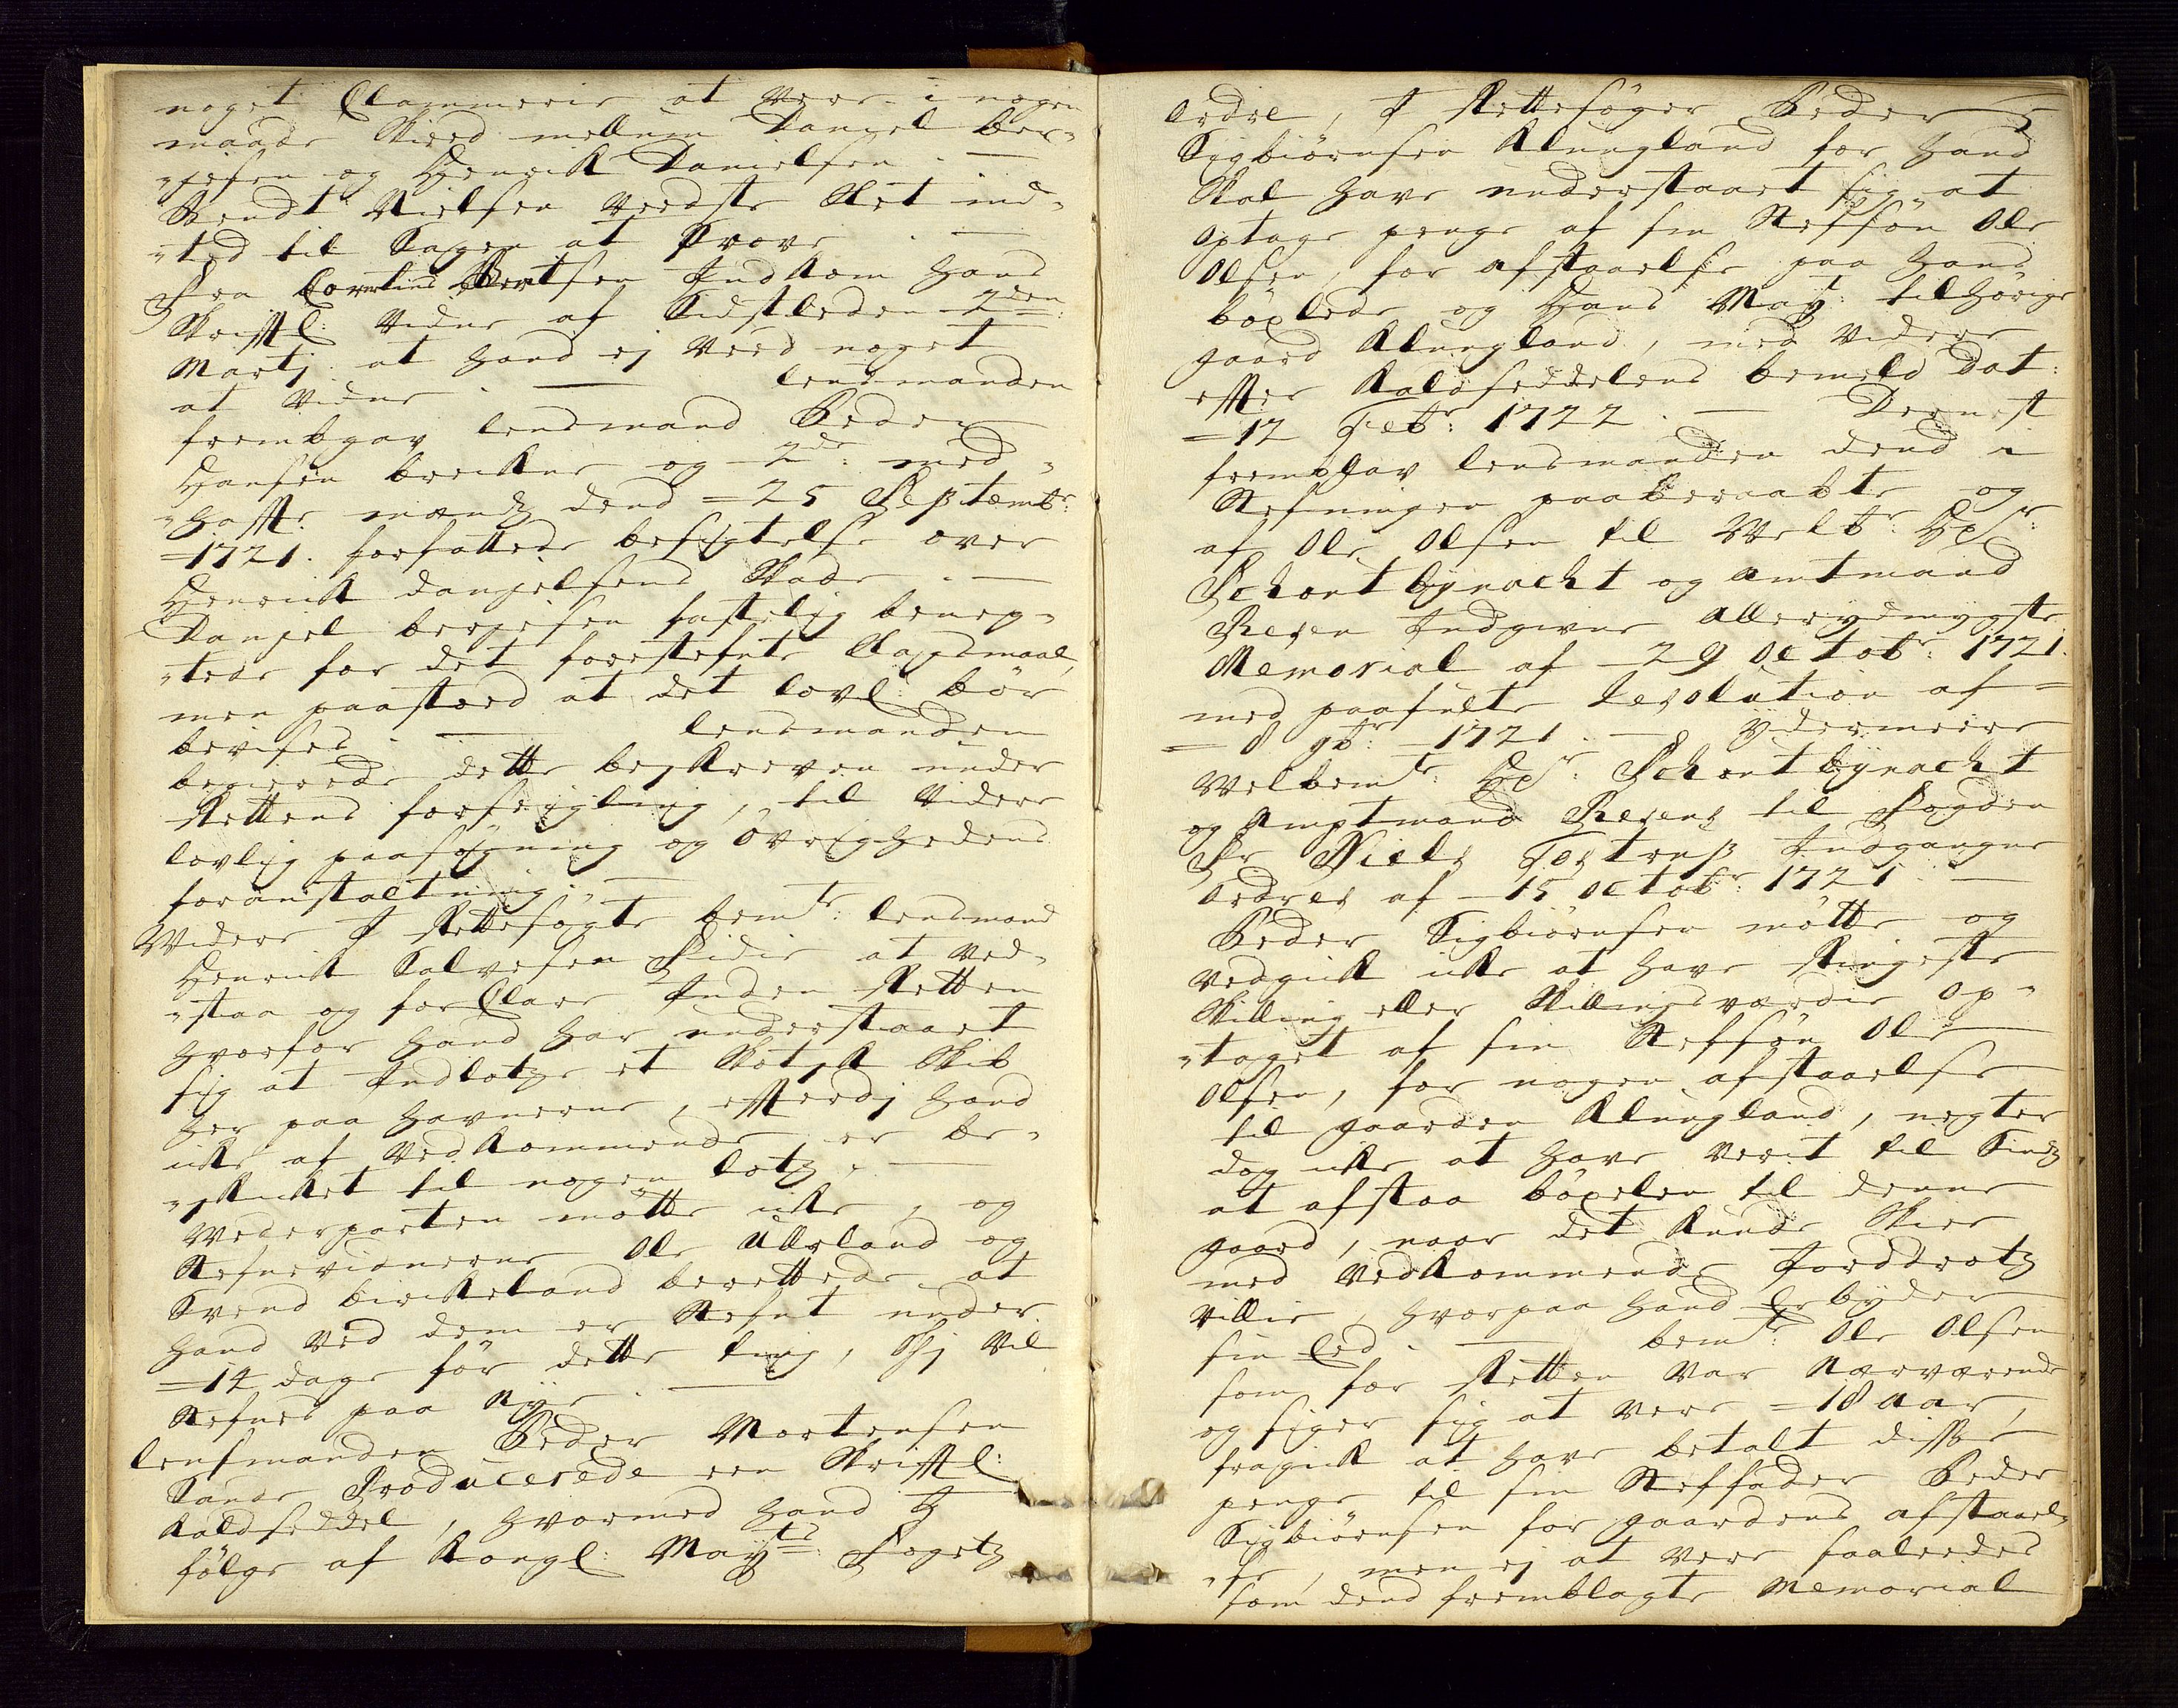 noget Clammerie at vere i nogen
maade Skeed mellum Daniel ber-
-jesen og Henrik Danielsen. —
Bendt Nielsen veedste Slet ind-
-ted til Sagen at Svare. —
Fra Cornelius Berntsen Indkom hans
Skriftl: vidne af Sidstleden 2den
Martj: at hand ej veed noget
at vidne. — lensmanden
frembgav lensmand Peder
Hansen breckne og 2de: med-
-haffte mænd dend = 25 Septembr:
= 1721. forfattede besigtelse over
Henrik Danjelsens Skade. —
Danjel berjesen hastelig beneg-
-tede for det forestefnte Clagdmaal,
men paastoed at det lovl: bør
bevises. — lensmanden
begierede dette beskreven under
Rettens forseigling, til videre
lovlig paasøgning og øvrighedens
foranstaltning. —
Widere I Rettesøgte bemte: lensmand
Henrik Salvesen Sidie at ved-
-staa og forClare Inden Retten
hvorfor hand har understaaet
sig at Indlotze et Skotsk Skib
her paa havnerne, efterdj hand
icke af vedkommende er be-
-skicket til nogen lotz. —
Wederparten møtte icke, og
Stefnevidnerne Ole Ulleland og
Svend birkeland berettede at
hand ved dem er Stefnt under
= 14 dage før dette ting, Thj vil
Stefnes paa Nye. —
lensmanden Peder Mortensen
Sande Producerede een Skriftl:
Kaldseddel, hvormed hand I
følge af Kongl: Mayts: Fogetz
ordre, I Rettesøger Peder
Sigbiørnsen Klungland for hand
Skal have understaaet sig at
optage penge af sin Stefsøn Ole
Olsen, for afstaaelse paa hans
böxlede og Hans Mayt: tilhørige
gaard Klungland, med videre
efter Kaldseddelens bemeld Dat:
= 12 Febr: 1722. — Dernest
fremblav lensmanden dend i
Stefningen paaberaabte og
af Ole Olsen til Welbr: Hr:
Schoutbynacht og amtmand
Resen Indgivne allerydmygste
Memorial af 29 Octobr: 1721.
med paafulte Resolution af =
= 8 9br: 1721. — Ydermeere
Welbemte: Hr: Schoutbynacht
og Amptmand Resens til Fogden
Sr Niels Testrup Indgangne
Ordres af 15 Octobr: 1721 —
Peder Sigbiørnsen møtte og
vedgick icke at have Ringeste
Skilling eller Skillingsværdie op-
-taget af sin Stefsøn Ole
Olsen, for nogen afstaaelse
til gaarden Klungland, negter
dog icke at have verit til Sindz
at afstaa böxelen til denne
gaard, naar det kunde Skee
med Vedkommende Jorddrotz
villie, hvorpaa hand Erbyder
sin Eed. — bemte: Ole Olsen
som for Retten var Nærværende
og siger sig at vere = 18 aar,
fragick at have betalt disse
penge til sin Steffader Peder
Sigbiørnsen for gaardens afstaael-
-se, men ej at vere saaledes
som dend fremblagte Memorial